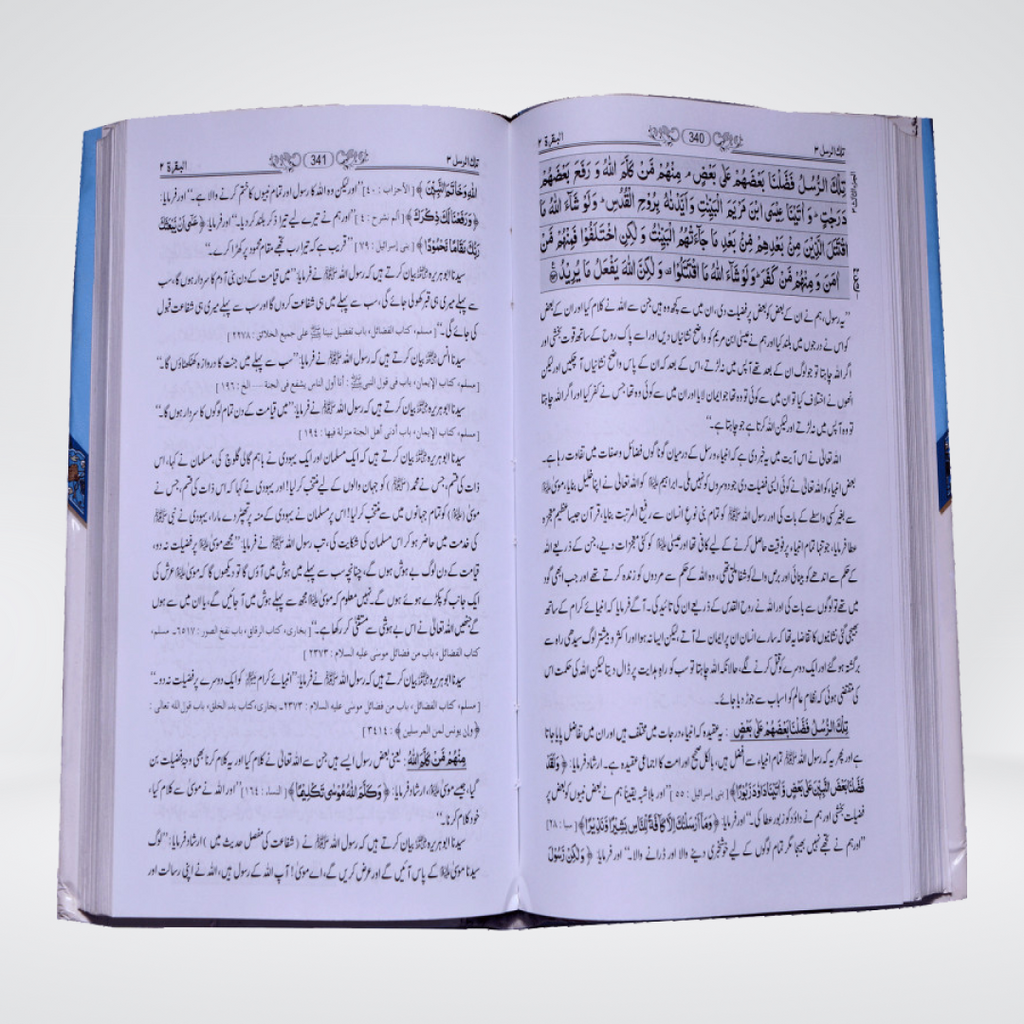 تلک الرسل ۳ 340 البقرۃ ۲
تِلْكَ الرُّسُلُ فَضَّلْنَا بَعْضَهُمْ عَلٰى بَعْضٍ ۘ مِنْهُمْ مَّنْ كَلَّمَ اللّٰهُ وَ رَفَعَ بَعْضَهُمْ
دَرَجٰتٍ ؕ وَ اٰتَيْنَا عِيْسَى ابْنَ مَرْيَمَ الْبَيِّنٰتِ وَ اَيَّدْنٰهُ بِرُوْحِ الْقُدُسِ ؕ وَ لَوْ شَآءَ اللّٰهُ مَا
اقْتَتَلَ الَّذِيْنَ مِنْۢ بَعْدِهِمْ مِّنْۢ بَعْدِ مَا جَآءَتْهُمُ الْبَيِّنٰتُ وَ لٰكِنِ اخْتَلَفُوْا فَمِنْهُمْ مَّنْ
اٰمَنَ وَ مِنْهُمْ مَّنْ كَفَرَ ؕ وَ لَوْ شَآءَ اللّٰهُ مَا اقْتَتَلُوْا ۫ وَ لٰكِنَّ اللّٰهَ يَفْعَلُ مَا يُرِيْدُ
”یہ رسول، ہم نے ان کے بعض کو بعض پر فضیلت دی، ان میں سے کچھ وہ ہیں جن سے اللہ نے کلام کیا اور ان کے بعض
کو اس نے درجوں میں بلند کیا اور ہم نے عیسیٰ ابن مریم کو واضح نشانیاں دیں اور اسے پاک روح کے ساتھ قوت بخشی اور
اگر اللہ چاہتا تو جو لوگ ان کے بعد تھے آپس میں نہ لڑتے، اس کے بعد کہ ان کے پاس واضح نشانیاں آ چکیں اور لیکن
انھوں نے اختلاف کیا تو ان میں سے کوئی تو وہ تھا جو ایمان لایا اور ان میں سے کوئی وہ تھا جس نے کفر کیا اور اگر اللہ چاہتا
تو وہ آپس میں نہ لڑتے اور لیکن اللہ کرتا ہے جو چاہتا ہے۔“
اللہ تعالیٰ نے اس آیت میں یہ خبر دی ہے کہ انبیاء و رسل کے درمیان گوناگوں فضائل و صفات میں تفاوت رہا ہے۔
بعض انبیاء کو اللہ تعالیٰ نے کوئی ایسی فضیلت دی جو دوسروں کو نہیں ملی۔ ابراہیم علیہ السلام کو اللہ تعالیٰ نے اپنا خلیل بنایا، موسیٰ علیہ السلام
سے بغیر کسی واسطے کے بات کی اور رسول اللہ ﷺ کو تمام بنی نوع انسان سے رفیع المرتبت بنایا، قرآن جیسا عظیم معجزہ
عطا فرمایا، جو تنہا تمام انبیاء پر فوقیت حاصل کرنے کے لیے کافی تھا اور عیسیٰ علیہ السلام کو کئی معجزات دیے، جن کے ذریعے اللہ
کے حکم سے اندھے کو بینائی اور برص والے کو شفا ملتی تھی، وہ اللہ کے حکم سے مردوں کو زندہ کرتے تھے اور جب ابھی گود
میں تھے تو لوگوں سے بات کی اور اللہ نے روح القدس کے ذریعے ان کی تائید کی۔ آگے فرمایا کہ انبیائے کرام کے ساتھ
بھیجی گئی نشانیوں کا تقاضا یہ تھا کہ سارے انسان ان پر ایمان لے آتے، لیکن ایسا نہ ہوا اور اکثر و بیشتر لوگ سیدھی راہ سے
برگشتہ ہو گئے اور ایک دوسرے کو قتل کرنے لگے، حالانکہ اللہ چاہتا تو سب کو راہِ ہدایت پر ڈال دیتا لیکن اللہ کی حکمت اس
کی مقتضی ہوئی کہ نظامِ عالم کو اسباب سے جوڑ دیا جائے۔
تِلْكَ الرُّسُلُ فَضَّلْنَا بَعْضَهُمْ عَلٰى بَعْضٍ : یہ عقیدہ کہ انبیاء درجات میں مختلف ہیں اور ان میں تفاضل پایا جاتا
ہے اور پھر یہ کہ رسول اللہ ﷺ تمام انبیاء سے افضل ہیں، بالکل صحیح اور امت کا اجماعی عقیدہ ہے۔ ارشاد فرمایا: ﴿ وَلَقَدْ
فَضَّلْنَا بَعْضَ النَّبِيّٖنَ عَلٰى بَعْضٍ وَّ اٰتَيْنَا دَاوٗدَ زَبُوْرًا ﴾ [ بنی إسرائیل : ۵۵ ] ”اور بلا شبہ یقیناً ہم نے بعض نبیوں کو بعض پر
فضیلت بخشی اور ہم نے داؤد کو زبور عطا کی۔“ اور فرمایا: ﴿ وَمَاۤ اَرْسَلْنٰكَ اِلَّا كَآفَّةً لِّلنَّاسِ بَشِيْرًا وَّ نَذِيْرًا ﴾ [ سبا : ۲۸ ]
”اور ہم نے تجھے نہیں بھیجا مگر تمام لوگوں کے لیے خوشخبری دینے والا اور ڈرانے والا۔“ اور فرمایا: ﴿ وَلٰكِنْ رَّسُوْلَ
تلک الرسل ۳ 341 البقرۃ ۲
اللّٰهِ وَ خَاتَمَ النَّبِيّٖنَ ﴾ [ الأحزاب : ۴۰ ] ”اور لیکن وہ اللہ کا رسول اور تمام نبیوں کا ختم کرنے والا ہے۔“ اور فرمایا:
﴿ وَ رَفَعْنَا لَكَ ذِكْرَكَ ﴾ [ ألم نشرح : ۴ ] ”اور ہم نے تیرے لیے تیرا ذکر بلند کر دیا۔“ اور فرمایا: ﴿ عَسٰۤى اَنْ يَّبْعَثَكَ
رَبُّكَ مَقَامًا مَّحْمُوْدًا ﴾ [ بنی إسرائیل : ۷۹ ] ”قریب ہے کہ تیرا رب تجھے مقامِ محمود پر کھڑا کرے۔“
سیدنا ابو ہریرہ رضی اللہ عنہ بیان کرتے ہیں کہ رسول اللہ ﷺ نے فرمایا: ”میں قیامت کے دن بنی آدم کا سردار ہوں گا، سب
سے پہلے میری ہی قبر کھولی جائے گی، سب سے پہلے میں ہی شفاعت کروں گا اور سب سے پہلے میری ہی شفاعت قبول
کی جائے گی۔“ [ مسلم، کتاب الفضائل، باب تفضیل نبینا ﷺ علی جمیع الخلائق : ۲۲۷۸ ]
سیدنا انس رضی اللہ عنہ بیان کرتے ہیں کہ رسول اللہ ﷺ نے فرمایا: ”سب سے پہلے میں جنت کا دروازہ کھٹکھٹاؤں گا۔“
[ مسلم، کتاب الإیمان، باب فی قول النبی ﷺ : أنا أول الناس یشفع فی الجنة ---- الخ : ۱۹۶ ]
سیدنا ابو ہریرہ رضی اللہ عنہ بیان کرتے ہیں کہ رسول اللہ ﷺ نے فرمایا: ”میں قیامت کے دن تمام لوگوں کا سردار ہوں گا۔“
[ مسلم، کتاب الإیمان، باب أدنی أهل الجنة منزلة فیها : ۱۹۴ ]
سیدنا ابو ہریرہ رضی اللہ عنہ بیان کرتے ہیں کہ ایک مسلمان اور ایک یہودی نے باہم گالی گلوچ کی، مسلمان نے کہا، اس
ذات کی قسم، جس نے محمد ( ﷺ ) کو جہان والوں کے لیے منتخب کر لیا! اور یہودی نے کہا کہ اس ذات کی قسم، جس نے
موسیٰ ( علیہ السلام ) کو تمام جہانوں میں سے منتخب کر لیا! اس پر مسلمان نے یہودی کے منہ پر تھپڑ دے مارا، یہودی نے نبی ﷺ
کی خدمت میں حاضر ہو کر اس مسلمان کی شکایت کی، تب رسول اللہ ﷺ نے فرمایا: ”مجھے موسیٰ علیہ السلام پر فضیلت نہ دو،
قیامت کے دن لوگ بے ہوش ہوں گے، چنانچہ سب سے پہلے میں ہوش میں آؤں گا تو دیکھوں گا کہ موسیٰ علیہ السلام عرش کی
ایک جانب کو پکڑے ہوئے ہوں گے۔ نہیں معلوم کہ موسیٰ علیہ السلام مجھ سے پہلے ہوش میں آ جائیں گے، یا ان میں سے ہوں
گے جنھیں اللہ تعالیٰ نے اس بے ہوشی سے مستثنیٰ کر رکھا ہے۔“ [ بخاری، کتاب الرقاق، باب نفخ الصور : ۶۵۱۷۔ مسلم،
کتاب الفضائل، باب من فضائل موسی علیه السلام : ۲۳۷۳ ]
سیدنا ابو ہریرہ رضی اللہ عنہ بیان کرتے ہیں کہ رسول اللہ ﷺ نے فرمایا: ”انبیائے کرام علیہم السلام کو ایک دوسرے پر فضیلت نہ دو۔“
[ مسلم، کتاب الفضائل، باب من فضائل موسی علیه السلام : ۲۳۷۳۔ بخاری، کتاب بدء الخلق، باب قول الله تعالی :
﴿ وإن یونس لمن المرسلین ﴾ : ۳۴۱۴ ]
مِنْهُمْ مَّنْ كَلَّمَ اللّٰهُ : یعنی بعض رسول ایسے ہیں جن سے اللہ تعالیٰ نے کلام کیا اور یہ کلام کرنا بھی وجہ فضیلت بن
گیا، جیسے موسیٰ علیہ السلام، ارشاد فرمایا: ﴿ وَ كَلَّمَ اللّٰهُ مُوْسٰى تَكْلِيْمًا ﴾ [ النساء : ۱۶۴ ] ”اور اللہ نے موسیٰ سے کلام کیا،
خود کلام کرنا۔“
سیدنا ابو ہریرہ رضی اللہ عنہ بیان کرتے ہیں کہ رسول اللہ ﷺ نے ( شفاعت کی مفصل حدیث میں ) ارشاد فرمایا: ”لوگ
سیدنا موسیٰ علیہ السلام کے پاس آئیں گے اور عرض کریں گے، اے موسیٰ! آپ اللہ کے رسول ہیں، اللہ نے اپنی رسالت اور